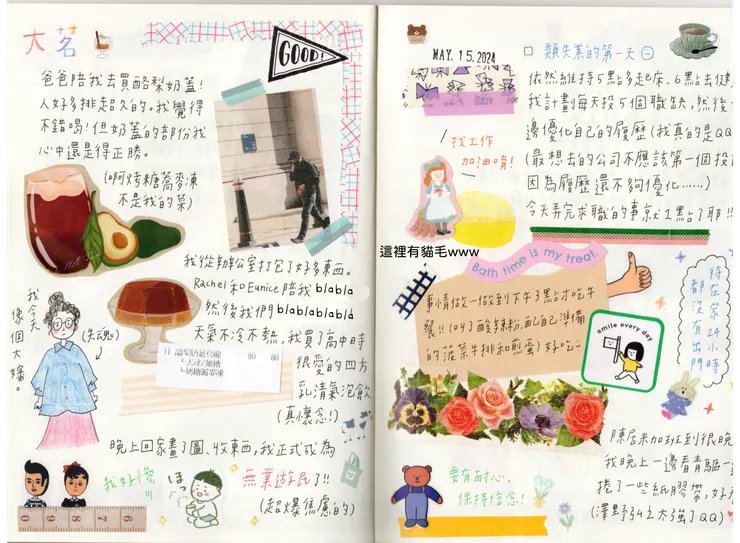 大茗
GOOD!
爸爸陪我去買酪梨奶蓋!
人好多排超久的。我覺得
不錯喝!但奶蓋的部份我
心中還是得正勝。
(啊烤糖蕎麥凍
不是我的菜)
我從辦公室打包了好多東西。
Rachel和Eunice陪我blabla
然後我們blablablablabla
天氣不冷不熱,我買了高中時
很愛的四方
乳清氣泡飲
(真懷念!)
我今天
像個大嬸。
(失魂)
80 80
晚上回家畫了圖、收東西,我正式成為
無業遊民了!!
(超爆焦慮的)
我好慘
ほっ
0 9 8 7 6
MAY. 15. 2024
類失業的第一天
依然維持5點多起床、6點去健
我計畫每天投5個職缺,然後一
邊優化自己的履歷(我真的是QQ
(最想去的公司不應該第一個投
因為履歷還不夠優化……)
今天弄完求職的事就1點了耶!!
找工作
加油唷!
這裡有貓毛www
Bath time is my treat.
事情做一做到下午了點才吃午
餐!!(叫了酸辣粉,配自己準備
的菠菜牛排和煎蛋)好吃
smile every day
待在家24小時
都沒有出門
陳居米加班到很晚
我晚上一邊看青驅一
捲了一些紙膠帶,好
(澤野弘之太強了QQ)
要有耐心,
保持信念!